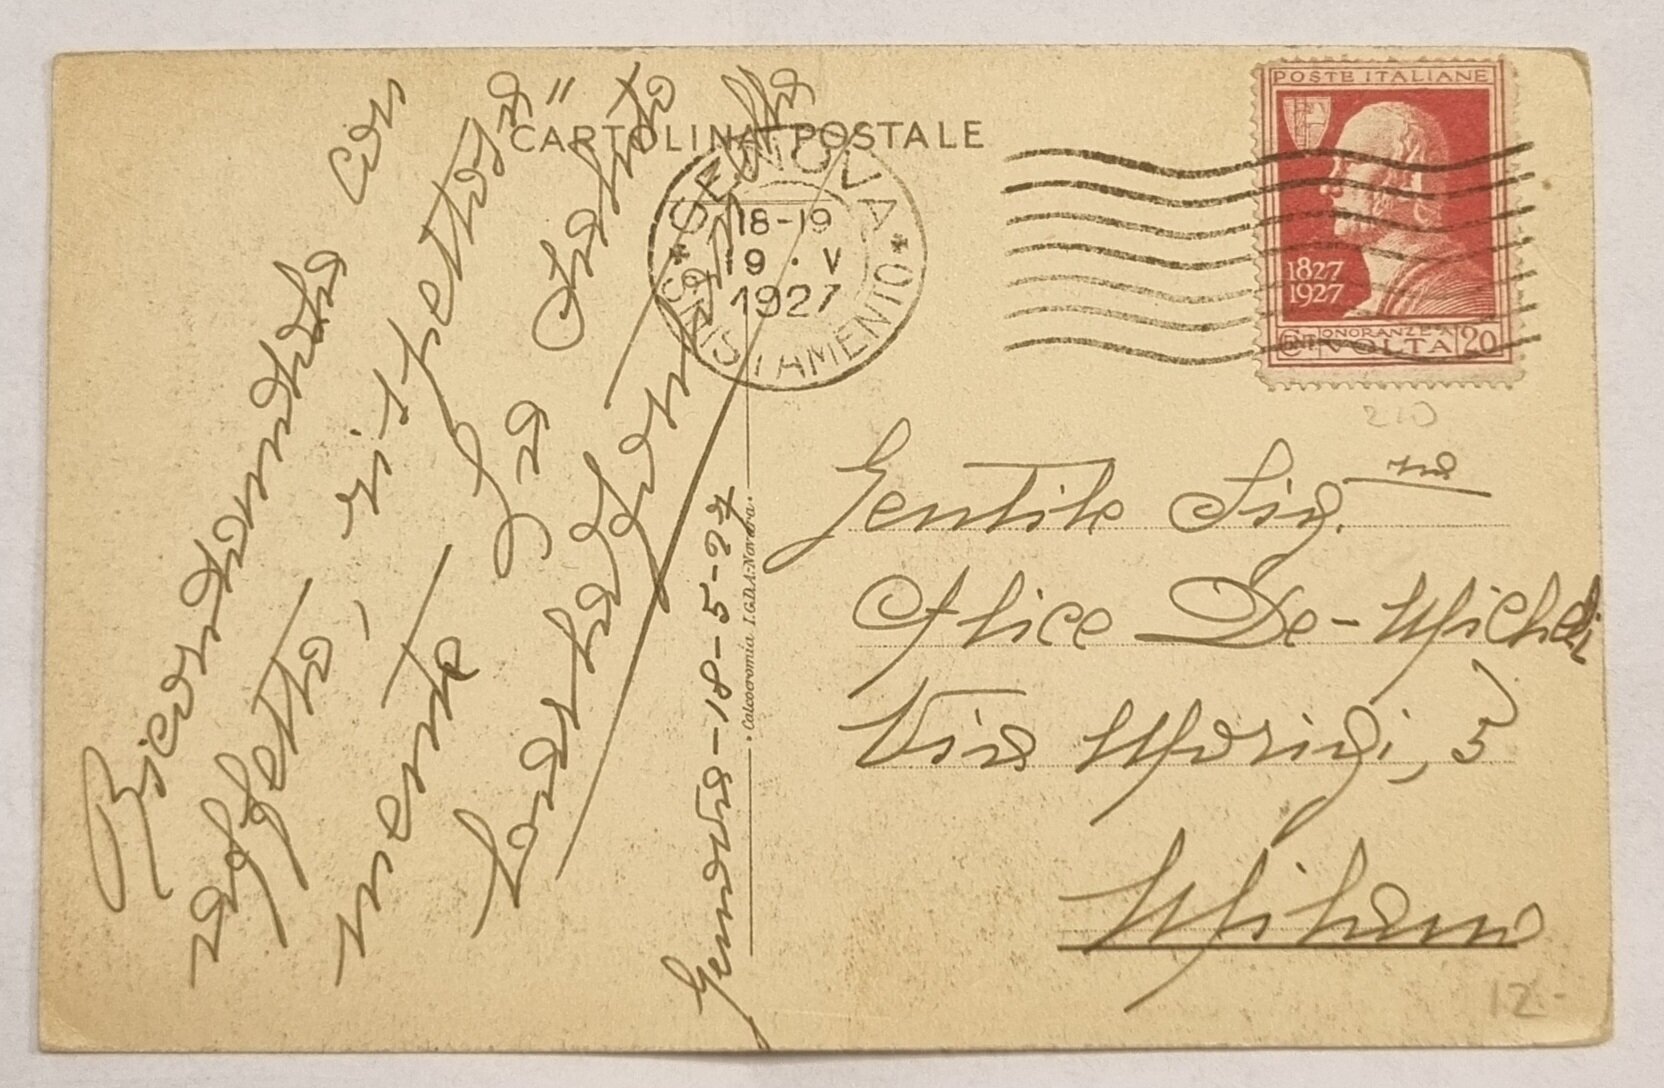 Ricordandola con
affetto, rispettosa=
mente La saluto
CARTOLINA POSTALE
GENOVA
18-19
9·V
1927
SMISTAMENTO
POSTE ITALIANE
1827
1927
ONORANZE A
CENT VOLTA 20
210
Genova-18-5-27
Calcocromia I.G.D.A.-Novara.
Gentile Sig.na
Alice De-Micheli
Via Morigi, 5
Milano
12-